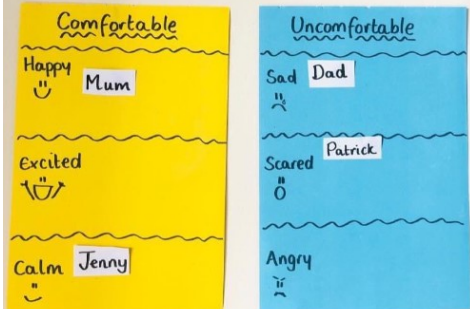 Comfortable
Happy
Mum
Excited
Calm
Jenny
Uncomfortable
Sad
Dad
Scared
Patrick
Angry